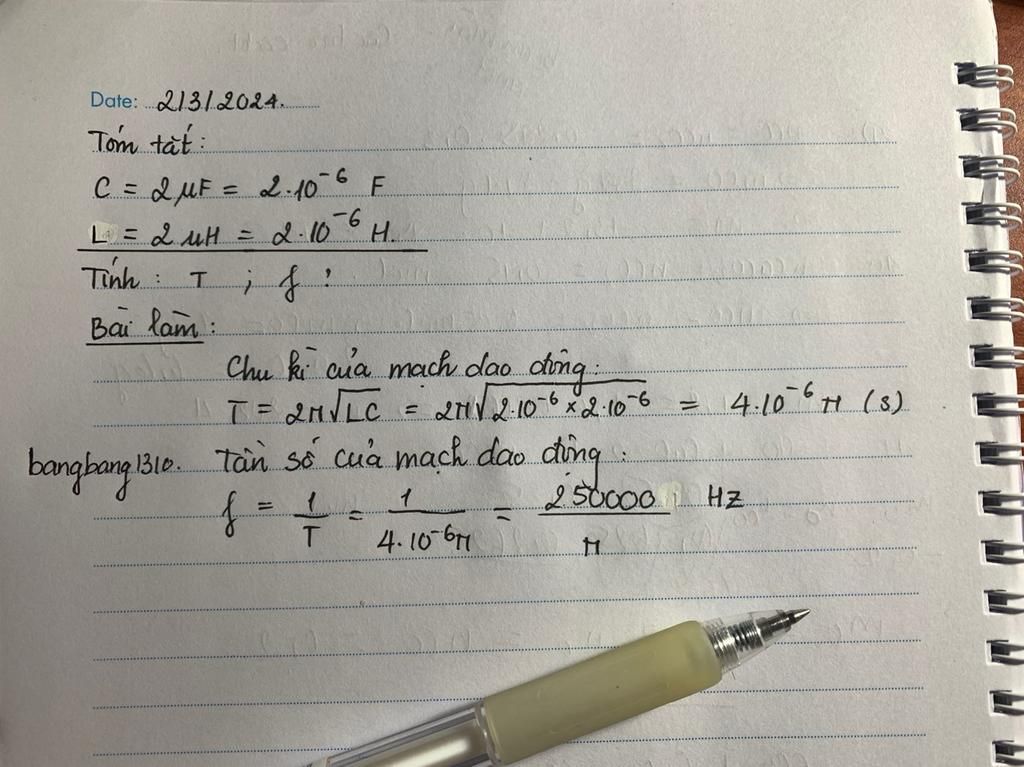 Date: 2/3/2024.
Tóm tắt:
C = 2 μF = 2.10⁻⁶ F
L = 2 μH = 2.10⁻⁶ H.
Tính: T ; f ?
Bài làm:
Chu kì của mạch dao động:
T = 2π√LC = 2π√2.10⁻⁶ × 2.10⁻⁶ = 4.10⁻⁶ π (s)
bangbang1310. Tần số của mạch dao động:
f = 1/T = 1/4.10⁻⁶π = 250000/π Hz